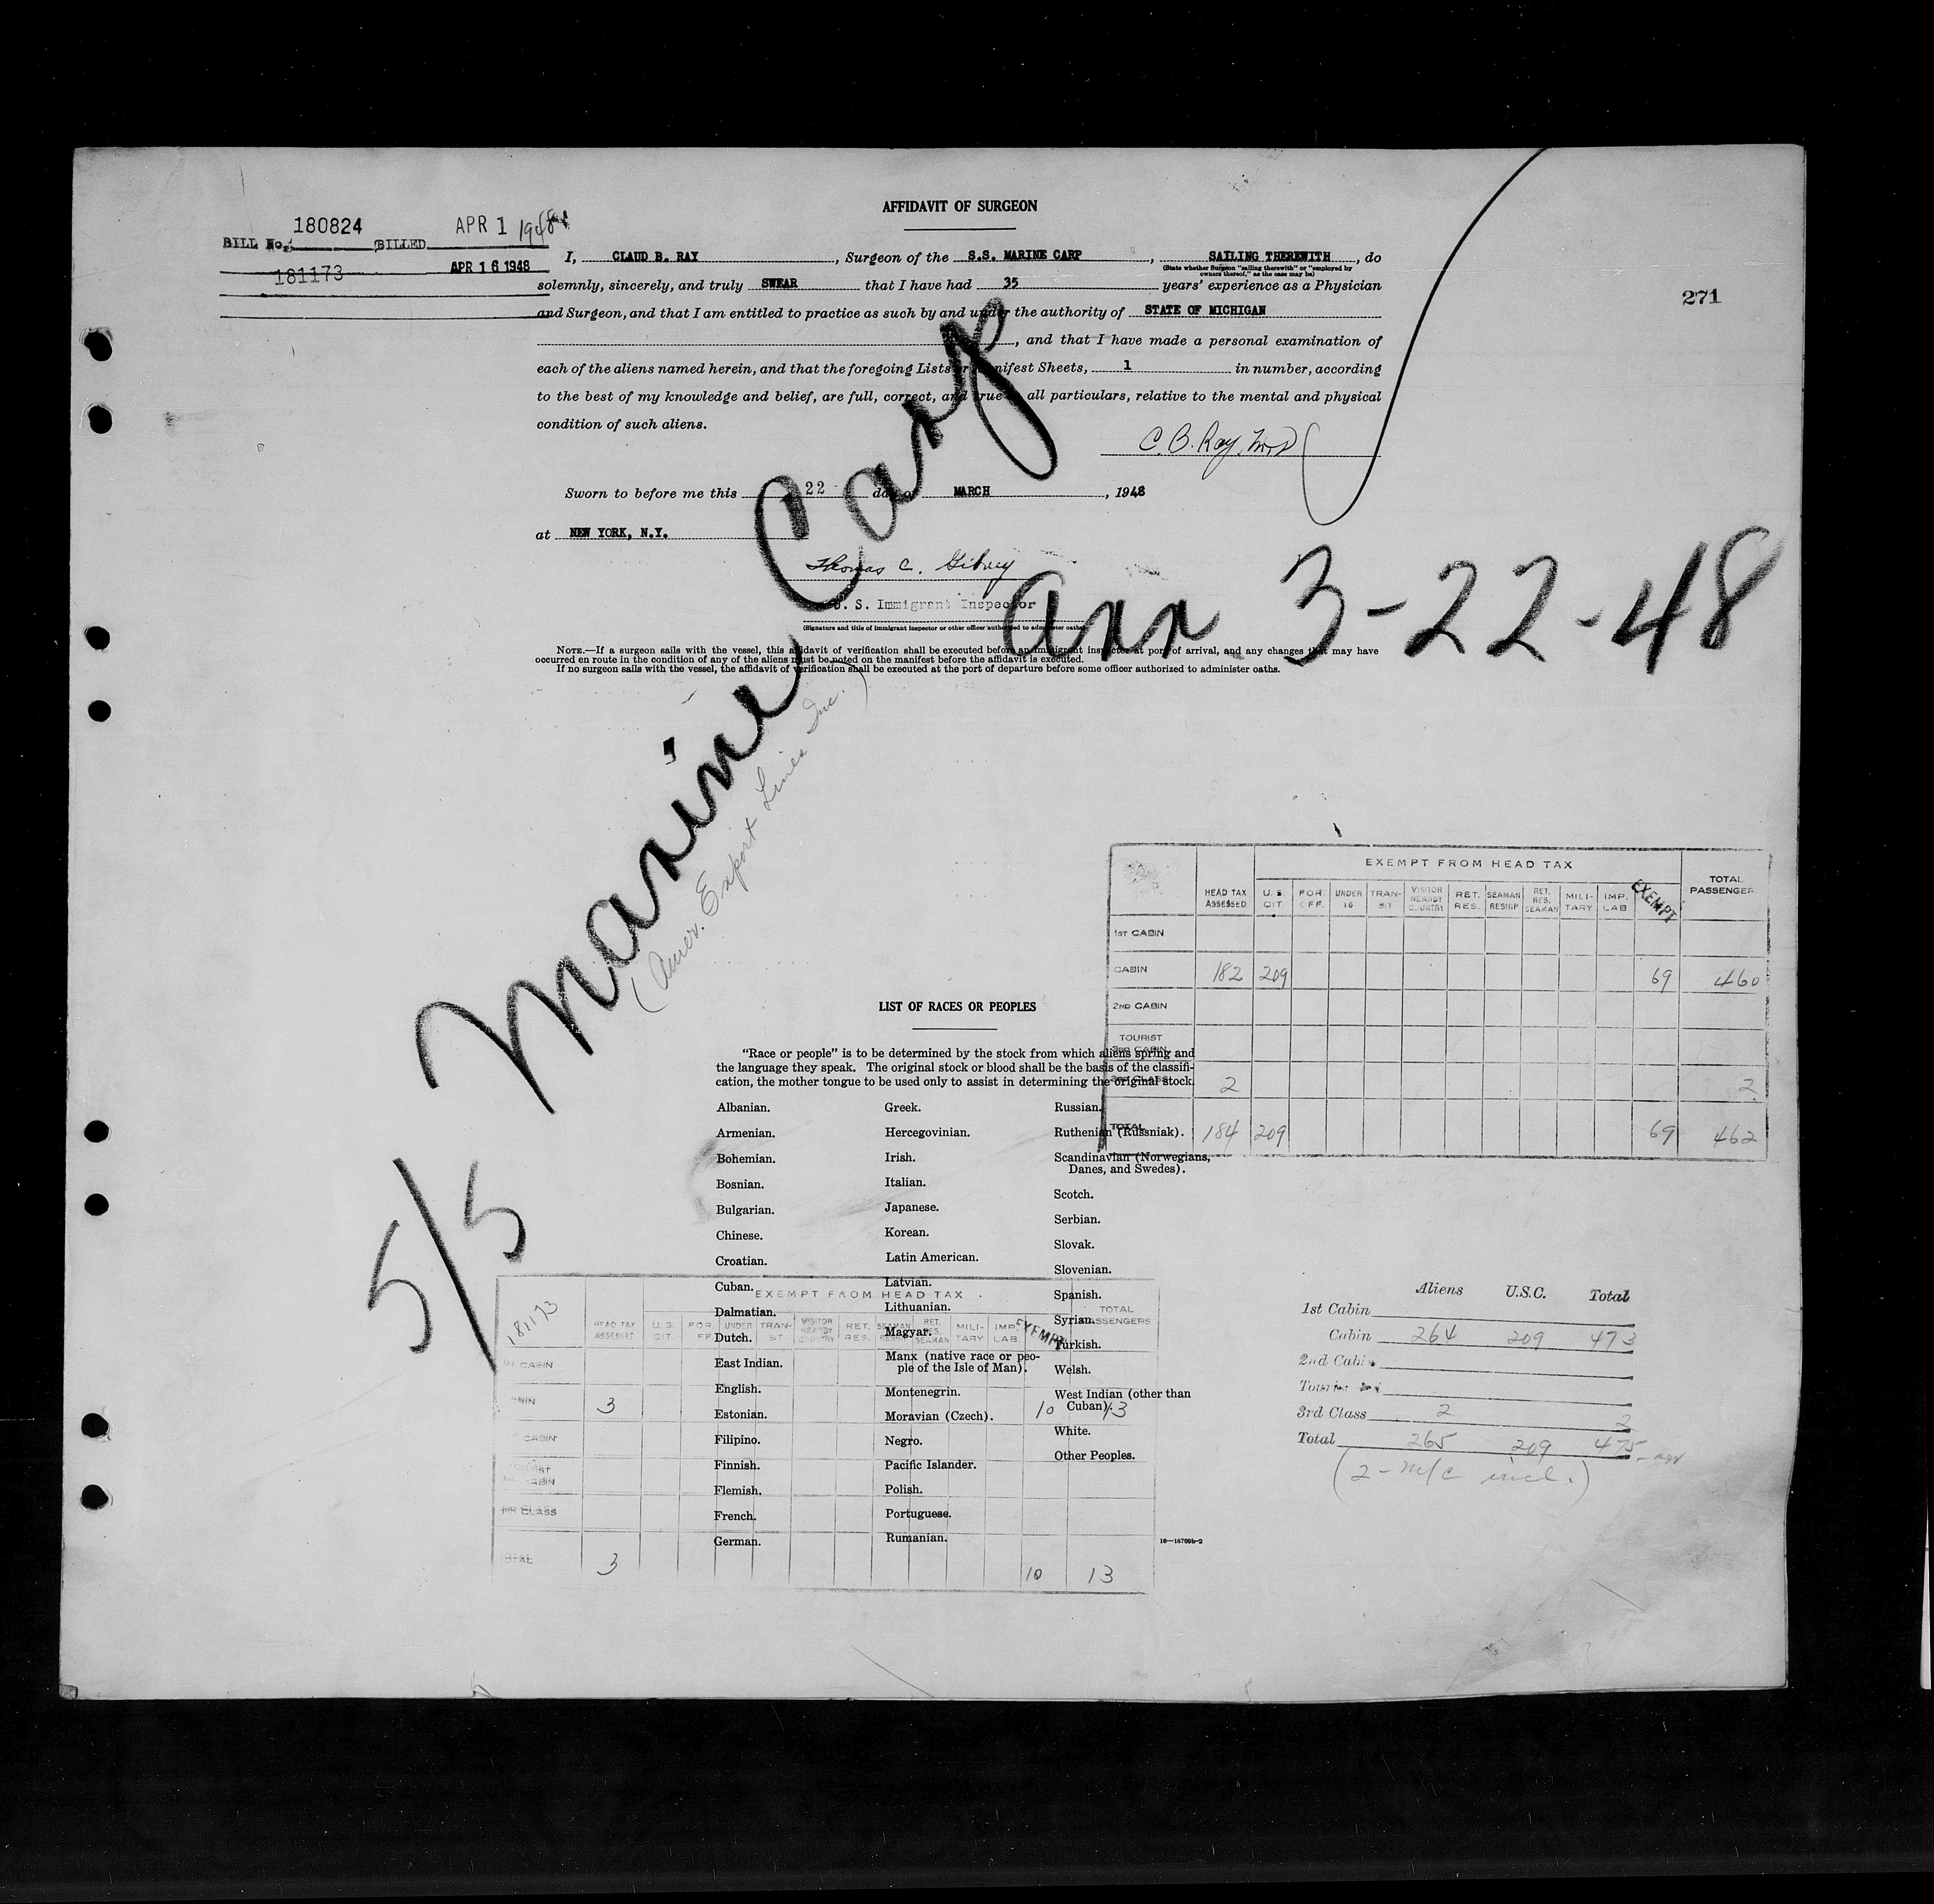 AFFIDAVIT OF SURGEON
180824 APR 1 1948
BILL No. BILLED
181173 APR 16 1948
271
I, CLAUD B. RAY, Surgeon of the S.S. MARINE CARP, SAILING THEREWITH, do
(State whether Surgeon "sailing therewith" or "employed by
owners thereof," as the case may be)
solemnly, sincerely, and truly SWEAR that I have had 35 years' experience as a Physician
and Surgeon, and that I am entitled to practice as such by and under the authority of STATE OF MICHIGAN
, and that I have made a personal examination of
each of the aliens named herein, and that the foregoing Lists or Manifest Sheets, 1 in number, according
to the best of my knowledge and belief, are full, correct, and true in all particulars, relative to the mental and physical
condition of such aliens.
C. B. Ray, M.D
Sworn to before me this 22 day of MARCH, 1948
at NEW YORK, N.Y.
Thomas C. Gibney
U. S. Immigrant Inspector
(Signature and title of immigrant inspector or other officer authorized to administer oaths)
NOTE.—If a surgeon sails with the vessel, this affidavit of verification shall be executed before an immigrant inspector at port of arrival, and any changes that may have
occurred en route in the condition of any of the aliens must be noted on the manifest before the affidavit is executed.
If no surgeon sails with the vessel, the affidavit of verification shall be executed at the port of departure before some officer authorized to administer oaths.
S/S Marine Carp
arr. 3-22-48
(Amer. Export Lines Inc.)
EXEMPT FROM HEAD TAX
HEAD TAX ASSESSED U. S. CIT. FOR. OFF. UNDER 16 TRAN-SIT VISITOR NEARBY COUNTRY RET. RES. SEAMAN RESHIP RET. RES. SEAMAN MILI-TARY IMP. LAB EXEMPT TOTAL PASSENGER
1ST CABIN
CABIN 182 209 69 460
2ND CABIN
TOURIST
3RD CABIN
3RD CLASS 2 2
TOTAL 184 209 69 462
LIST OF RACES OR PEOPLES
"Race or people" is to be determined by the stock from which aliens spring and
the language they speak. The original stock or blood shall be the basis of the classifi-
cation, the mother tongue to be used only to assist in determining the original stock.
Albanian.
Armenian.
Bohemian.
Bosnian.
Bulgarian.
Chinese.
Croatian.
Cuban.
Dalmatian.
Dutch.
East Indian.
English.
Estonian.
Filipino.
Finnish.
Flemish.
French.
German.
Greek.
Hercegovinian.
Irish.
Italian.
Japanese.
Korean.
Latin American.
Latvian.
Lithuanian.
Magyar.
Manx (native race or peo-
ple of the Isle of Man).
Montenegrin.
Moravian (Czech).
Negro.
Pacific Islander.
Polish.
Portuguese.
Rumanian.
Russian.
Ruthenian (Russniak).
Scandinavian (Norwegians,
Danes, and Swedes).
Scotch.
Serbian.
Slovak.
Slovenian.
Spanish.
Syrian.
Turkish.
Welsh.
West Indian (other than
Cuban).
White.
Other Peoples.
16—18709b-2
181173
EXEMPT FROM HEAD TAX
HEAD TAX ASSESSED U. S. CIT. FOR. OFF. UNDER TRAN-SIT VISITOR NEARBY COUNTRY RET. RES. SEAMAN RET. RES. SEAMAN MILI-TARY IMP. LAB. EXEMPT TOTAL PASSENGERS
CABIN
CABIN 3 10 13
CABIN
CABIN
3RD CLASS
TOTAL 3 10 13
Aliens U.S.C. Total
1st Cabin
Cabin 264 209 473
2nd Cabin
Tourist
3rd Class 2 2
Total 265 209 475
(2-m/c incl.)